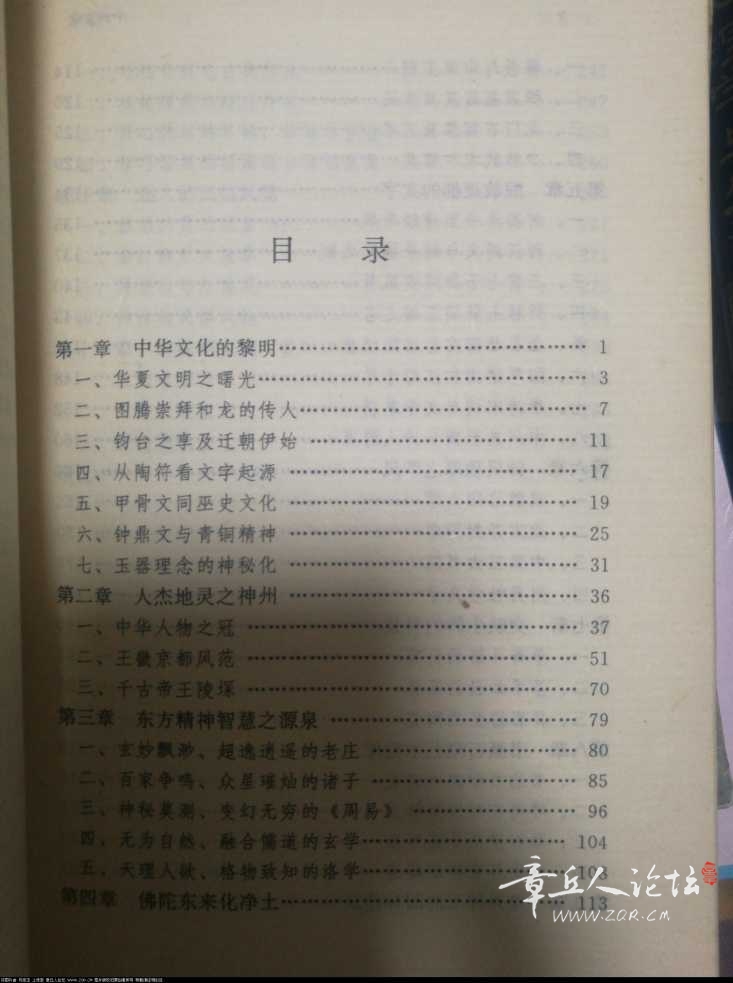 目 录
第一章 中华文化的黎明……………………………… 1
一、华夏文明之曙光……………………………… 3
二、图腾崇拜和龙的传人……………………………… 7
三、钧台之享及迁朝伊始 ……………………………… 11
四、从陶符看文字起源 ……………………………… 17
五、甲骨文同巫史文化 ……………………………… 19
六、钟鼎文与青铜精神 ……………………………… 25
七、玉器理念的神秘化 ……………………………… 31
第二章 人杰地灵之神州 ……………………………… 36
一、中华人物之冠 ……………………………… 37
二、王徽京都风范 ……………………………… 51
三、千古帝王陵琛 ……………………………… 70
第三章 东方精神智慧之源泉 ……………………………… 79
一、玄妙飘渺、超逸逍遥的老庄 ……………………………… 80
二、百家争鸣、众星璀灿的诸子 ……………………………… 85
三、神秘莫测、变幻无穷的《周易》 ……………………………… 96
四、无为自然、融合儒道的玄学……………………………… 104
五、天理人欲、格物致知的洛学……………………………… 108
第四章 佛陀东来化净土……………………………… 113
章丘人论坛
WWW.ZQR.CM